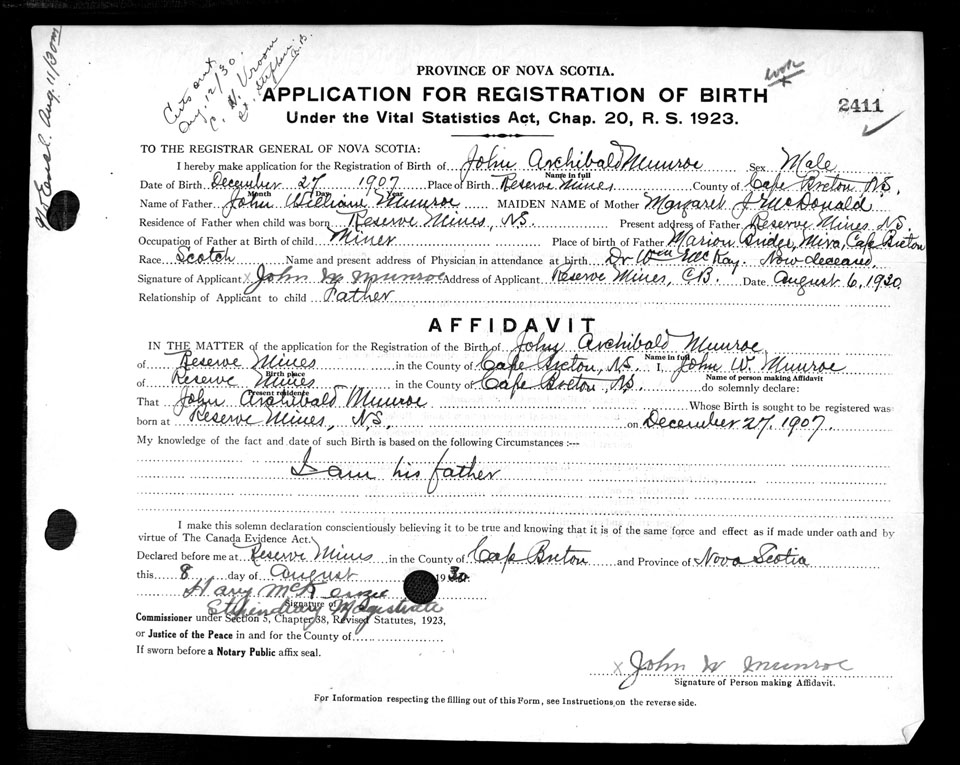 Aug. 11/30
Certs sent
Aug. 12/30
C. H. Vroom
St. Stephen
N.B.
PROVINCE OF NOVA SCOTIA.
APPLICATION FOR REGISTRATION OF BIRTH
2411
Under the Vital Statistics Act, Chap. 20, R. S. 1923.
TO THE REGISTRAR GENERAL OF NOVA SCOTIA:
I hereby make application for the Registration of Birth of John Archibald Munroe Sex Male
Name in full
Date of Birth December 27 1907 Place of Birth Reserve Mines County of Cape Breton N.S.
Month Day Year
Name of Father John William Munroe MAIDEN NAME of Mother Margaret J McDonald
Residence of Father when child was born Reserve Mines, N.S. Present address of Father Reserve Mines N.S.
Occupation of Father at Birth of child Miner Place of birth of Father Marion Bridge, Mira, Cape Breton
Race Scotch Name and present address of Physician in attendance at birth Dr. Wm McKay. Now deceased.
Signature of Applicant x John W Munroe Address of Applicant Reserve Mines, C.B. Date August 6, 1930
Relationship of Applicant to child Father
AFFIDAVIT
IN THE MATTER of the application for the Registration of the Birth of John Archibald Munroe
Name in full
of Reserve Mines in the County of Cape Breton, N.S. I, John W. Munroe
Birth place Name of person making Affidavit
of Reserve Mines in the County of Cape Breton N.S. do solemnly declare:
Present residence
That John Archibald Munroe Whose Birth is sought to be registered was
born at Reserve Mines, N.S. on December 27, 1907.
My knowledge of the fact and date of such Birth is based on the following Circumstances :---
I am his father
I make this solemn declaration conscientiously believing it to be true and knowing that it is of the same force and effect as if made under oath and by
virtue of The Canada Evidence Act.
Declared before me at Reserve Mines in the County of Cape Breton and Province of Nova Scotia
this 8 day of August 1930
Signature of
Stipendiary Magistrate
Commissioner under Section 5, Chapter 38, Revised Statutes, 1923,
or Justice of the Peace in and for the County of
If sworn before a Notary Public affix seal.
x John W Munroe
Signature of Person making Affidavit.
For Information respecting the filling out of this Form, see Instructions on the reverse side.